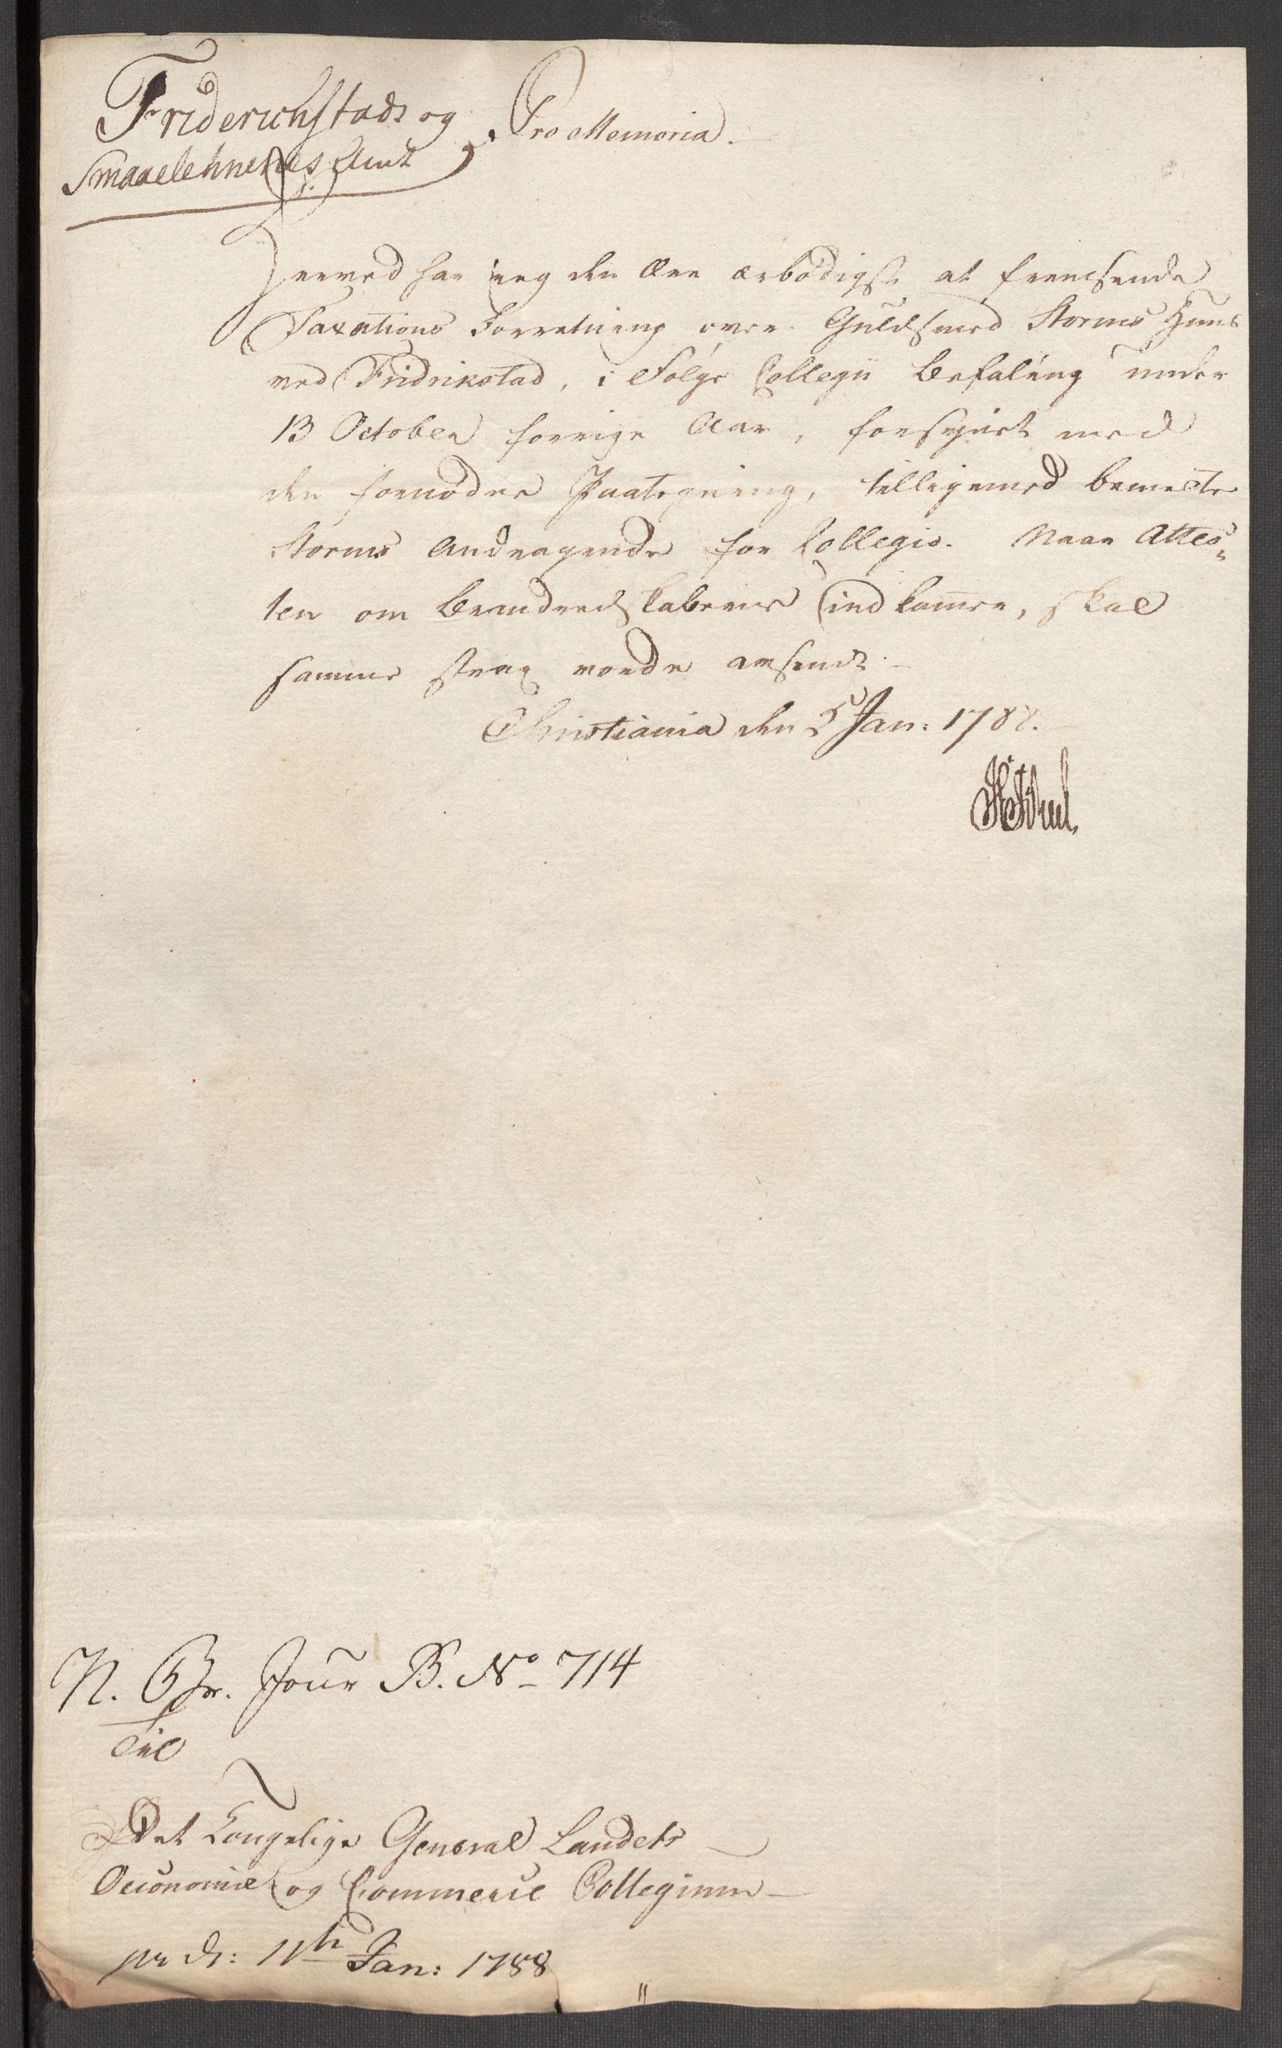 Friderichstads og
Smaalehnenes Amt
Pro Memoria.
Herved har ieg den Ære ærbødigst at fremsende
Taxations Forretning over Guldsmed Storms Huus
ved Fridrikstad, i Følge Collegii Befaling under
13 October forrige Aar, forsÿnet med
den fornødne Paategning, tilligemed bemelte
Storms Andragende for Collegio. Naar Attes-
ten om Brandredskaberne indkommer, skal
samme strax vorde insendt.
Christiania den 5 Jan: 1788.
N. Br. Jour B. No 714
Til
Det Kongelige General Landets
Oeconomie og Commerce Collegium
pr d: 11th Jan: 1788